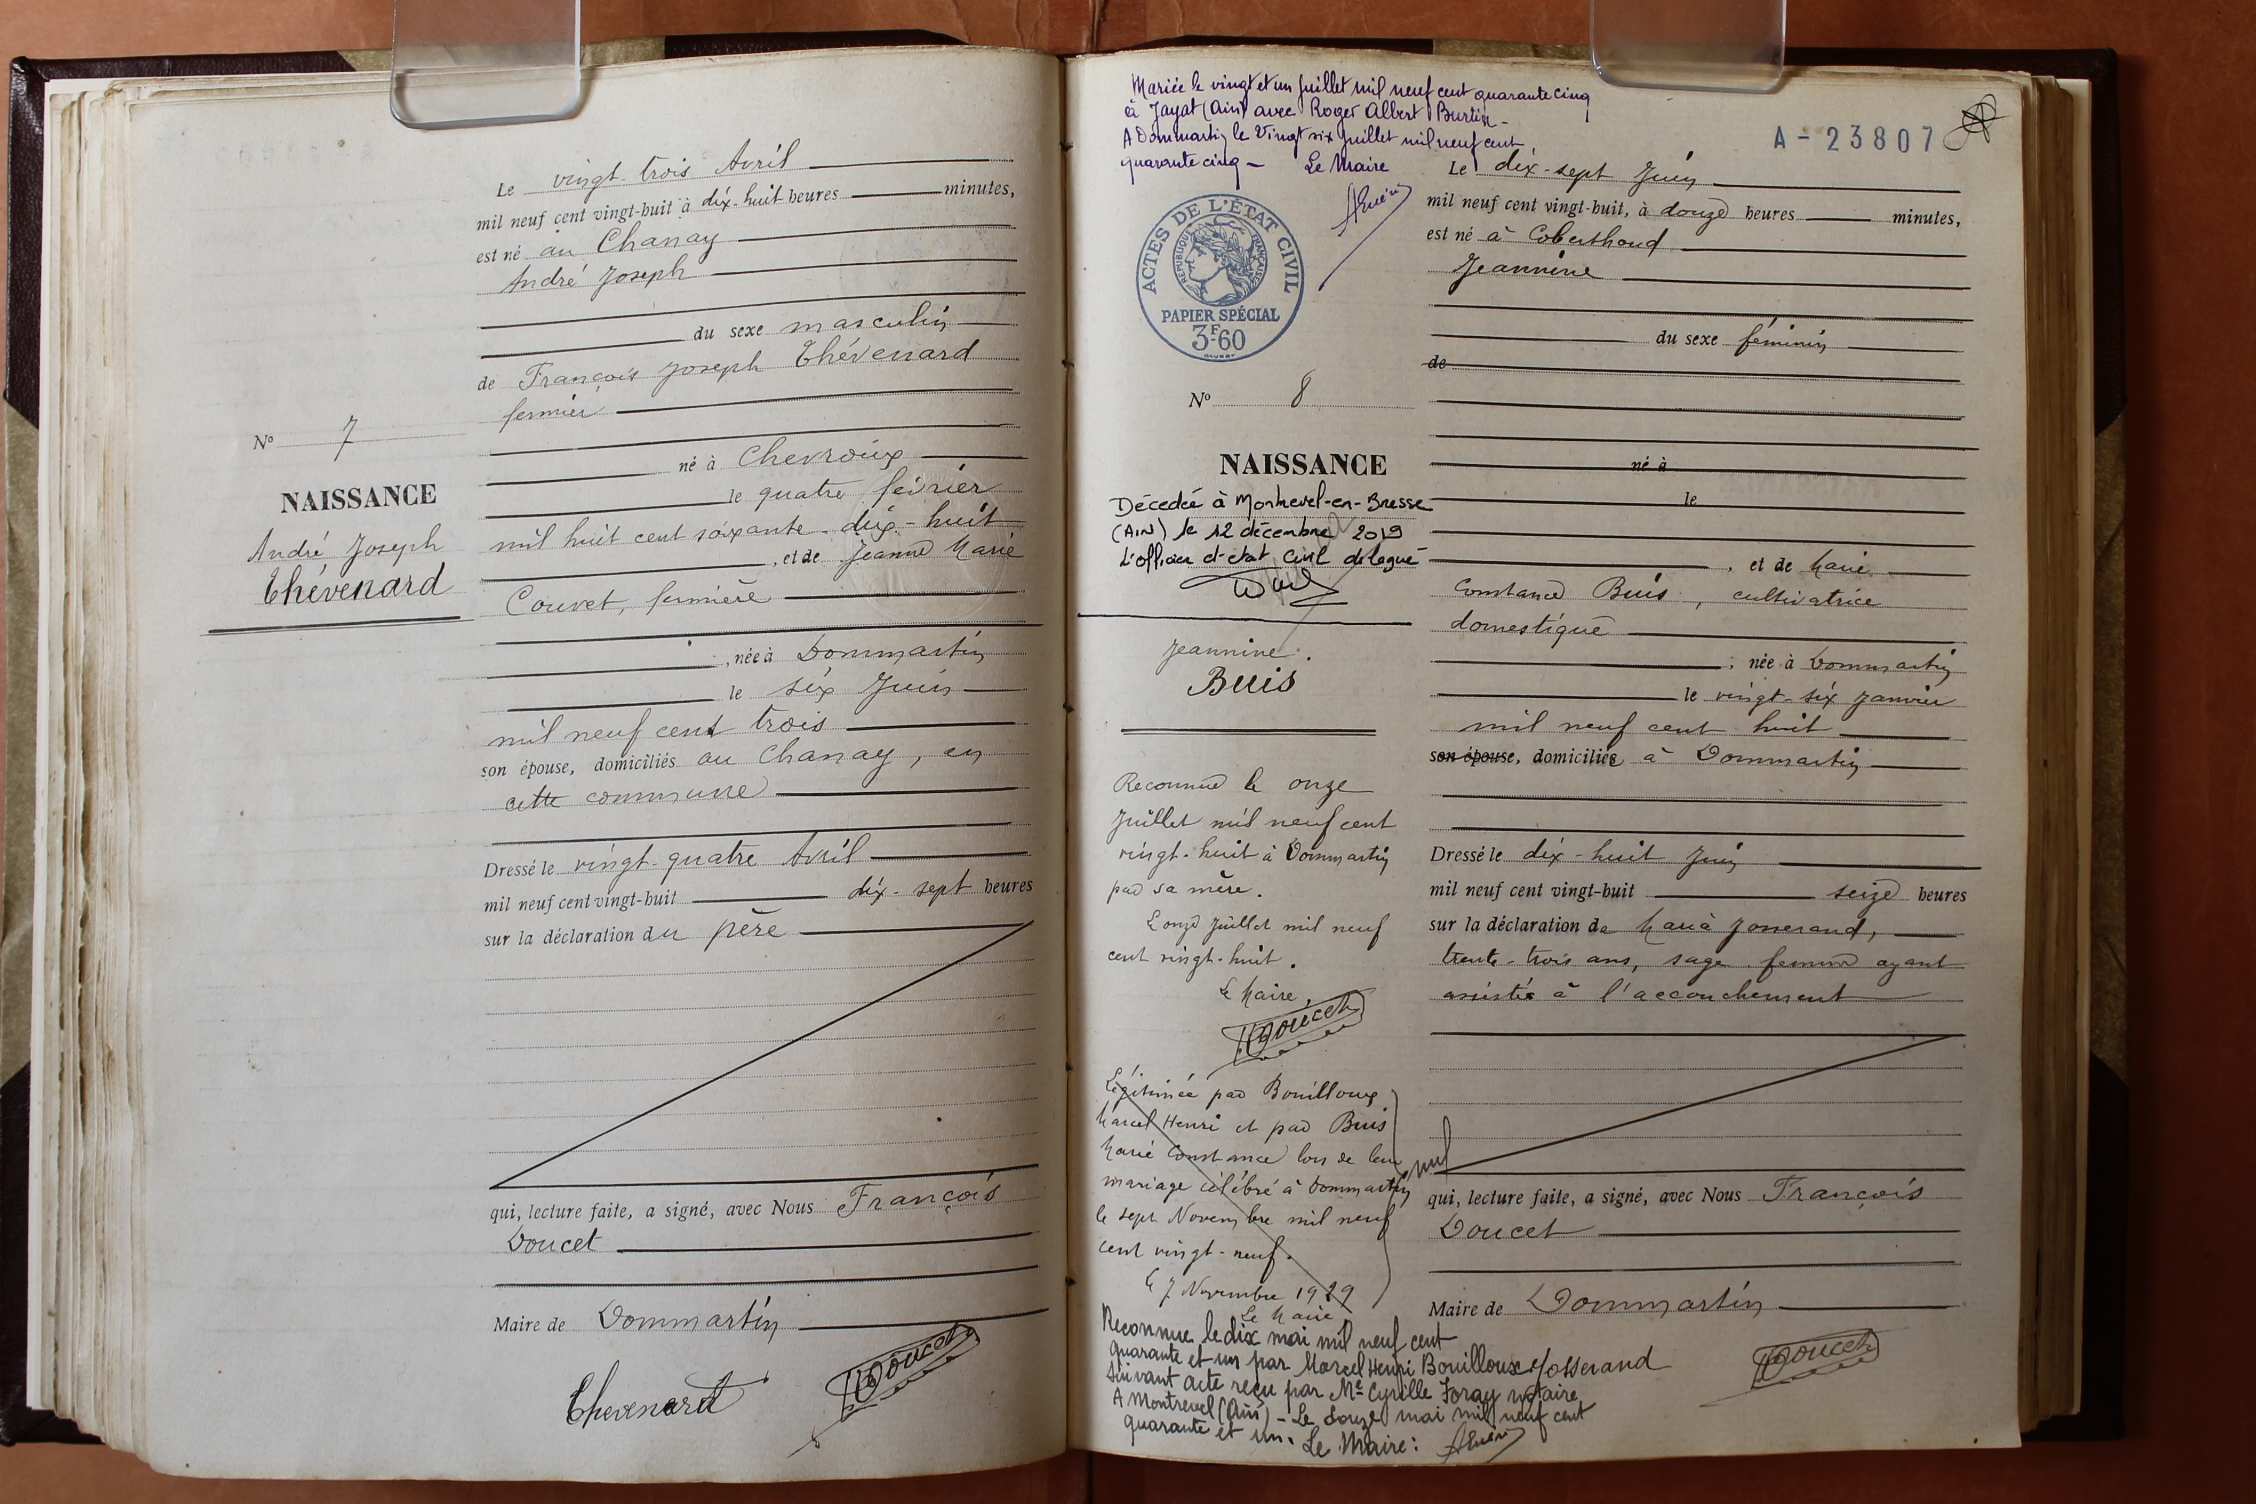 Le vingt-trois Avril
mil neuf cent vingt-huit à dix-huit heures minutes,
est né au Chanay
André Joseph
du sexe masculin
de François Joseph Thévenard
fermier
né à Chevroux
le quatre février
mil huit cent soixante-dix-huit
, et de Jeanne Marie
Couvet, fermière
, née à Dommartin
le six Juin
mil neuf cent trois
son épouse, domiciliés au Chanay, en
cette commune
Dressé le vingt-quatre Avril
mil neuf cent vingt-huit dix-sept heures
sur la déclaration du père
qui, lecture faite, a signé, avec Nous François
Doucet
Maire de Dommartin
Thevenard
Doucet
No 7
NAISSANCE
André Joseph
Thévenard
Mariée le vingt et un Juillet mil neuf cent quarante cinq
à Jayat (Ain) avec Roger Albert Burtin -
A Dommartin le Vingt six Juillet mil neuf cent
quarante cinq - Le Maire
ACTES DE L'ÉTAT CIVIL
RÉPUBLIQUE FRANÇAISE
PAPIER SPÉCIAL
3F60
No 8
NAISSANCE
Décedée à Montrevel-en-Bresse
(AIN) le 12 décembre 2019
L'officier d'état civil délégué
Jeannine.
Buis
Reconnue le onze
Juillet mil neuf cent
vingt-huit à Dommartin
par sa mère.
Le onze Juillet mil neuf
cent vingt-huit.
Le Maire,
Doucet
Légitimée par Bouilloux
Marcel Henri et par Buis
Marie Constance lors de leur
mariage célébré à Dommartin
le sept Novembre mil neuf
cent vingt-neuf.
Le 7 Novembre 1929
Le Maire,
nul
Reconnue le dix mai mil neuf cent
quarante et un par Marcel Henri Bouilloux-Josserand
suivant acte reçu par Me Cyrille Foray notaire
A Montrevel (Ain) - Le douze mai mil neuf cent
quarante et un. Le Maire:
A-23807
Le dix-sept Juin
mil neuf cent vingt-huit, à douze heures minutes,
est né à Coberthoud
Jeannine
du sexe féminin
de
né à
le
, et de Marie
Constance Buis, cultivatrice
domestique
, née à Dommartin
le vingt-six Janvier
mil neuf cent huit
son épouse, domiciliée à Dommartin
Dressé le dix-huit Juin
mil neuf cent vingt-huit seize heures
sur la déclaration de Maria Josserand,
trente-trois ans, sage-femme ayant
assisté à l'accouchement
qui, lecture faite, a signé, avec Nous François
Doucet
Maire de Dommartin
Doucet